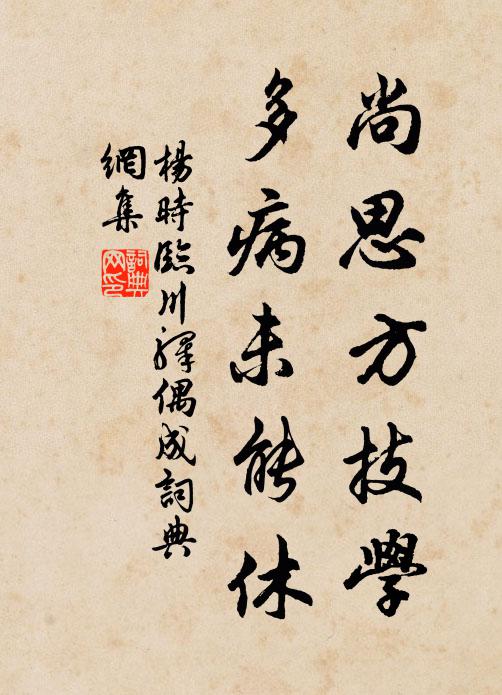 尚思方技學
多病未能休
楊時臨川驛偶成詞典
網集
詞典
网印